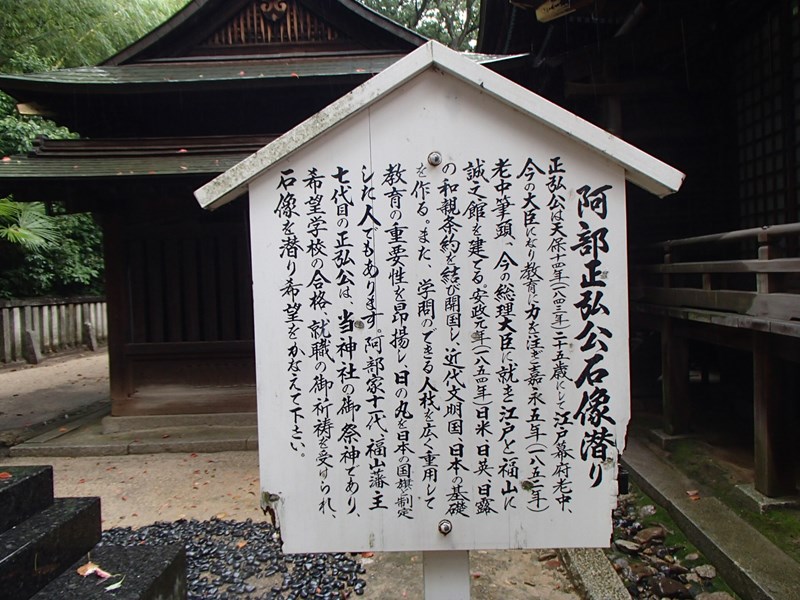 阿部正弘公石像潜り
正弘公は天保十四年(一八四三年)二十五歳にして江戸幕府老中、
今の大臣になり教育に力を注ぎ嘉永五年(一八五二年)
老中筆頭、今の総理大臣に就き江戸と福山に
誠之館を建てる。安政元年(一八五四年)日米、日英、日露
の和親条約を結び開国し、近代文明国、日本の基礎
を作る。また、学問のできる人材を広く重用して
教育の重要性を昂揚し日の丸を日本の国旗と制定
した人でもあります。阿部家十一代、福山藩主
七代目の正弘公は、当神社の御祭神であり、
希望学校の合格、就職の御祈祷を受けられ、
石像を潜り希望をかなえて下さい。